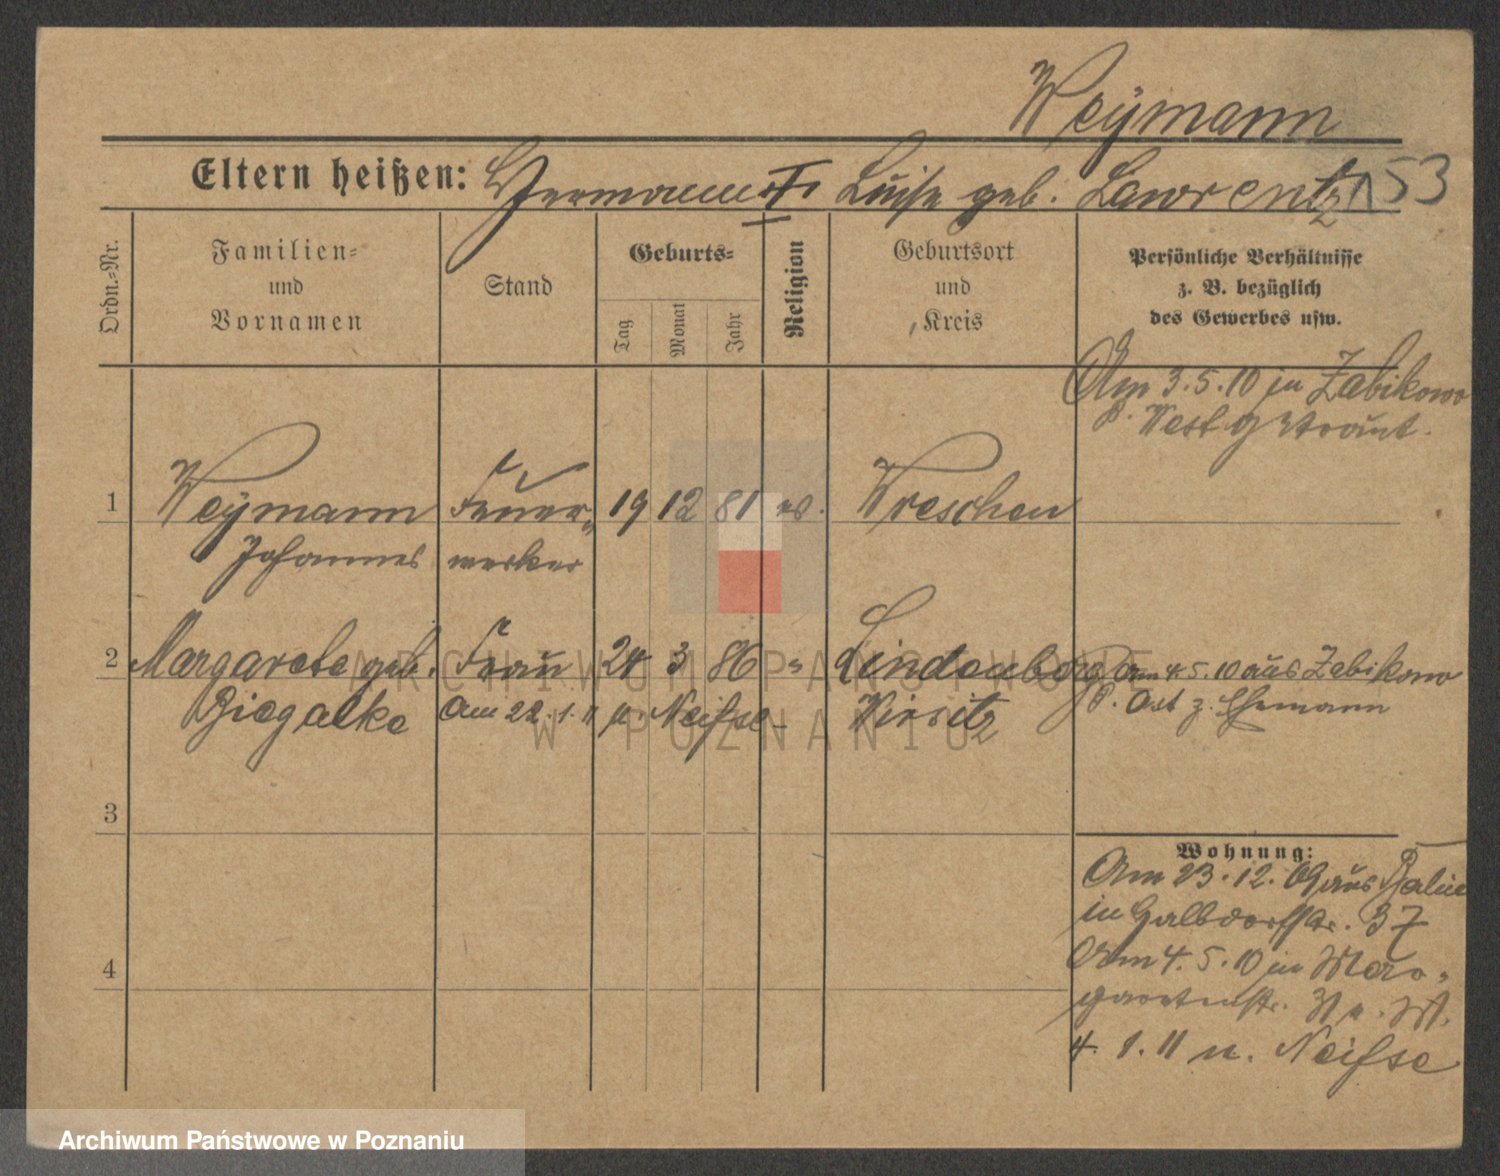 Weÿmann
Eltern heißen: Hermann u. Luise geb. Lawrentz 153
Ordn.-Nr.
Familien-
und
Vornamen
Stand
Geburts-
Tag
Monat
Jahr
Religion
Geburtsort
und
Kreis
Persönliche Verhältnisse
z. B. bezüglich
des Gewerbes usw.
Am 3.5.10 in Zabikowo
P. West getraut.
1 Weÿmann Feuer- 19 12 81 ev. Wreschen
Johannes werker
2 Margarete geb. Frau 24 3 86 " Lindenburg Am 4.5.10 aus Zabikowo
Biegalke Am 22.1.11 n. Neisse Wirsitz P. Ost z. Ehemann
3
4
Wohnung:
Am 23.12.09 aus
in Halbdorfstr. 37
Am 4.5.10 in
gartenstr.
4.1.11 n. Neisse
ARCHIWUM PAŃSTWOWE
W POZNANIU
Archiwum Państwowe w Poznaniu